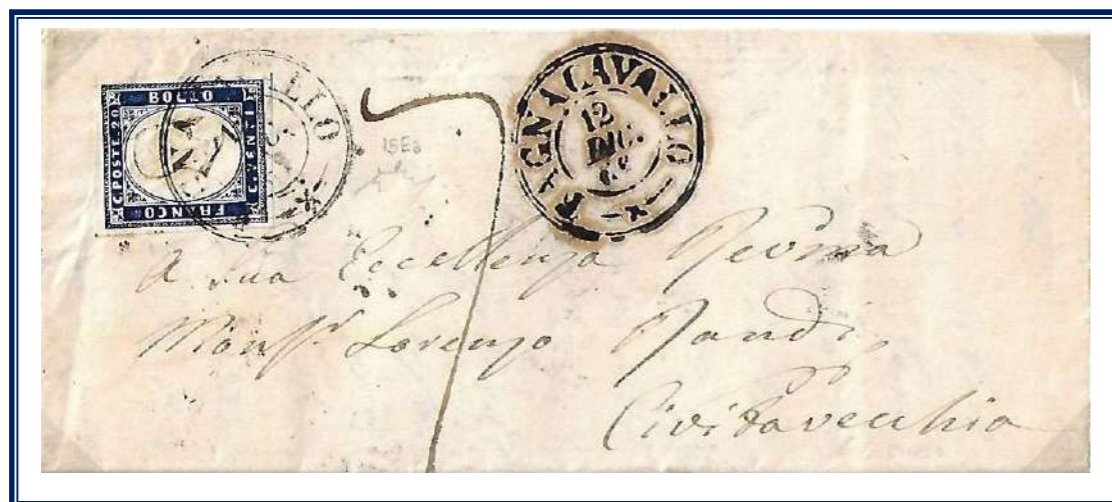 BOLLO
C. POSTE. 20
C. VENTI
FRANCO
BAGNACAVALLO
12
DIC.
7
A Sua Eccellenza Revma
Monsr Lorenzo Randi
Civitavecchia